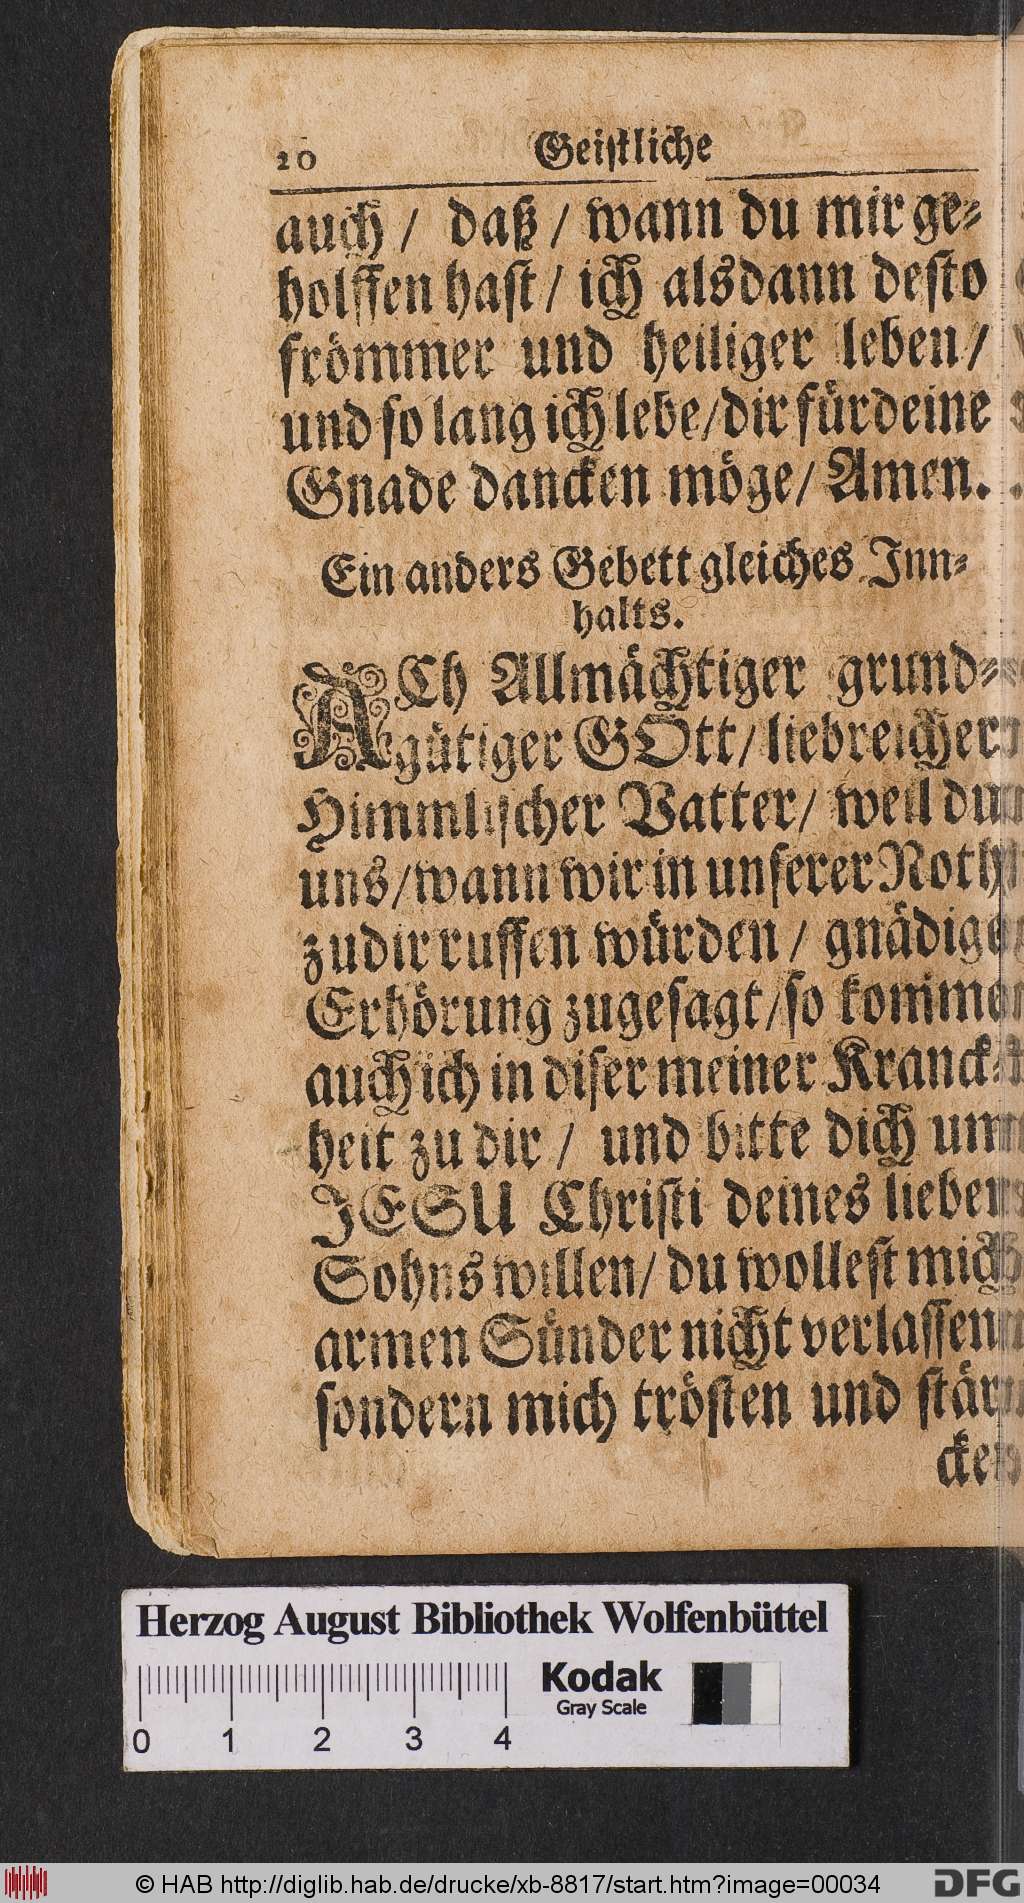 20 Geistliche
auch / daß / wann du mir ge-
holffen hast / ich alsdann desto
frömmer und heiliger leben /
und so lang ich lebe / dir für deine
Gnade dancken möge / Amen.
Ein anders Gebett gleiches Inn-
halts.
ACh Allmächtiger grund-
gütiger GOtt / liebreicher
Himmlischer Vatter / weil du
uns / wann wir in unserer Noth
zu dir ruffen würden / gnädige
Erhörung zugesagt / so komme
auch ich in diser meiner Kranck-
heit zu dir / und bitte dich um
JESU Christi deines lieben
Sohns willen / du wollest mich
armen Sünder nicht verlassen
sondern mich trösten und stär-
cken
Herzog August Bibliothek Wolfenbüttel
Kodak
Gray Scale
0 1 2 3 4
© HAB http://diglib.hab.de/drucke/xb-8817/start.htm?image=00034
DFG